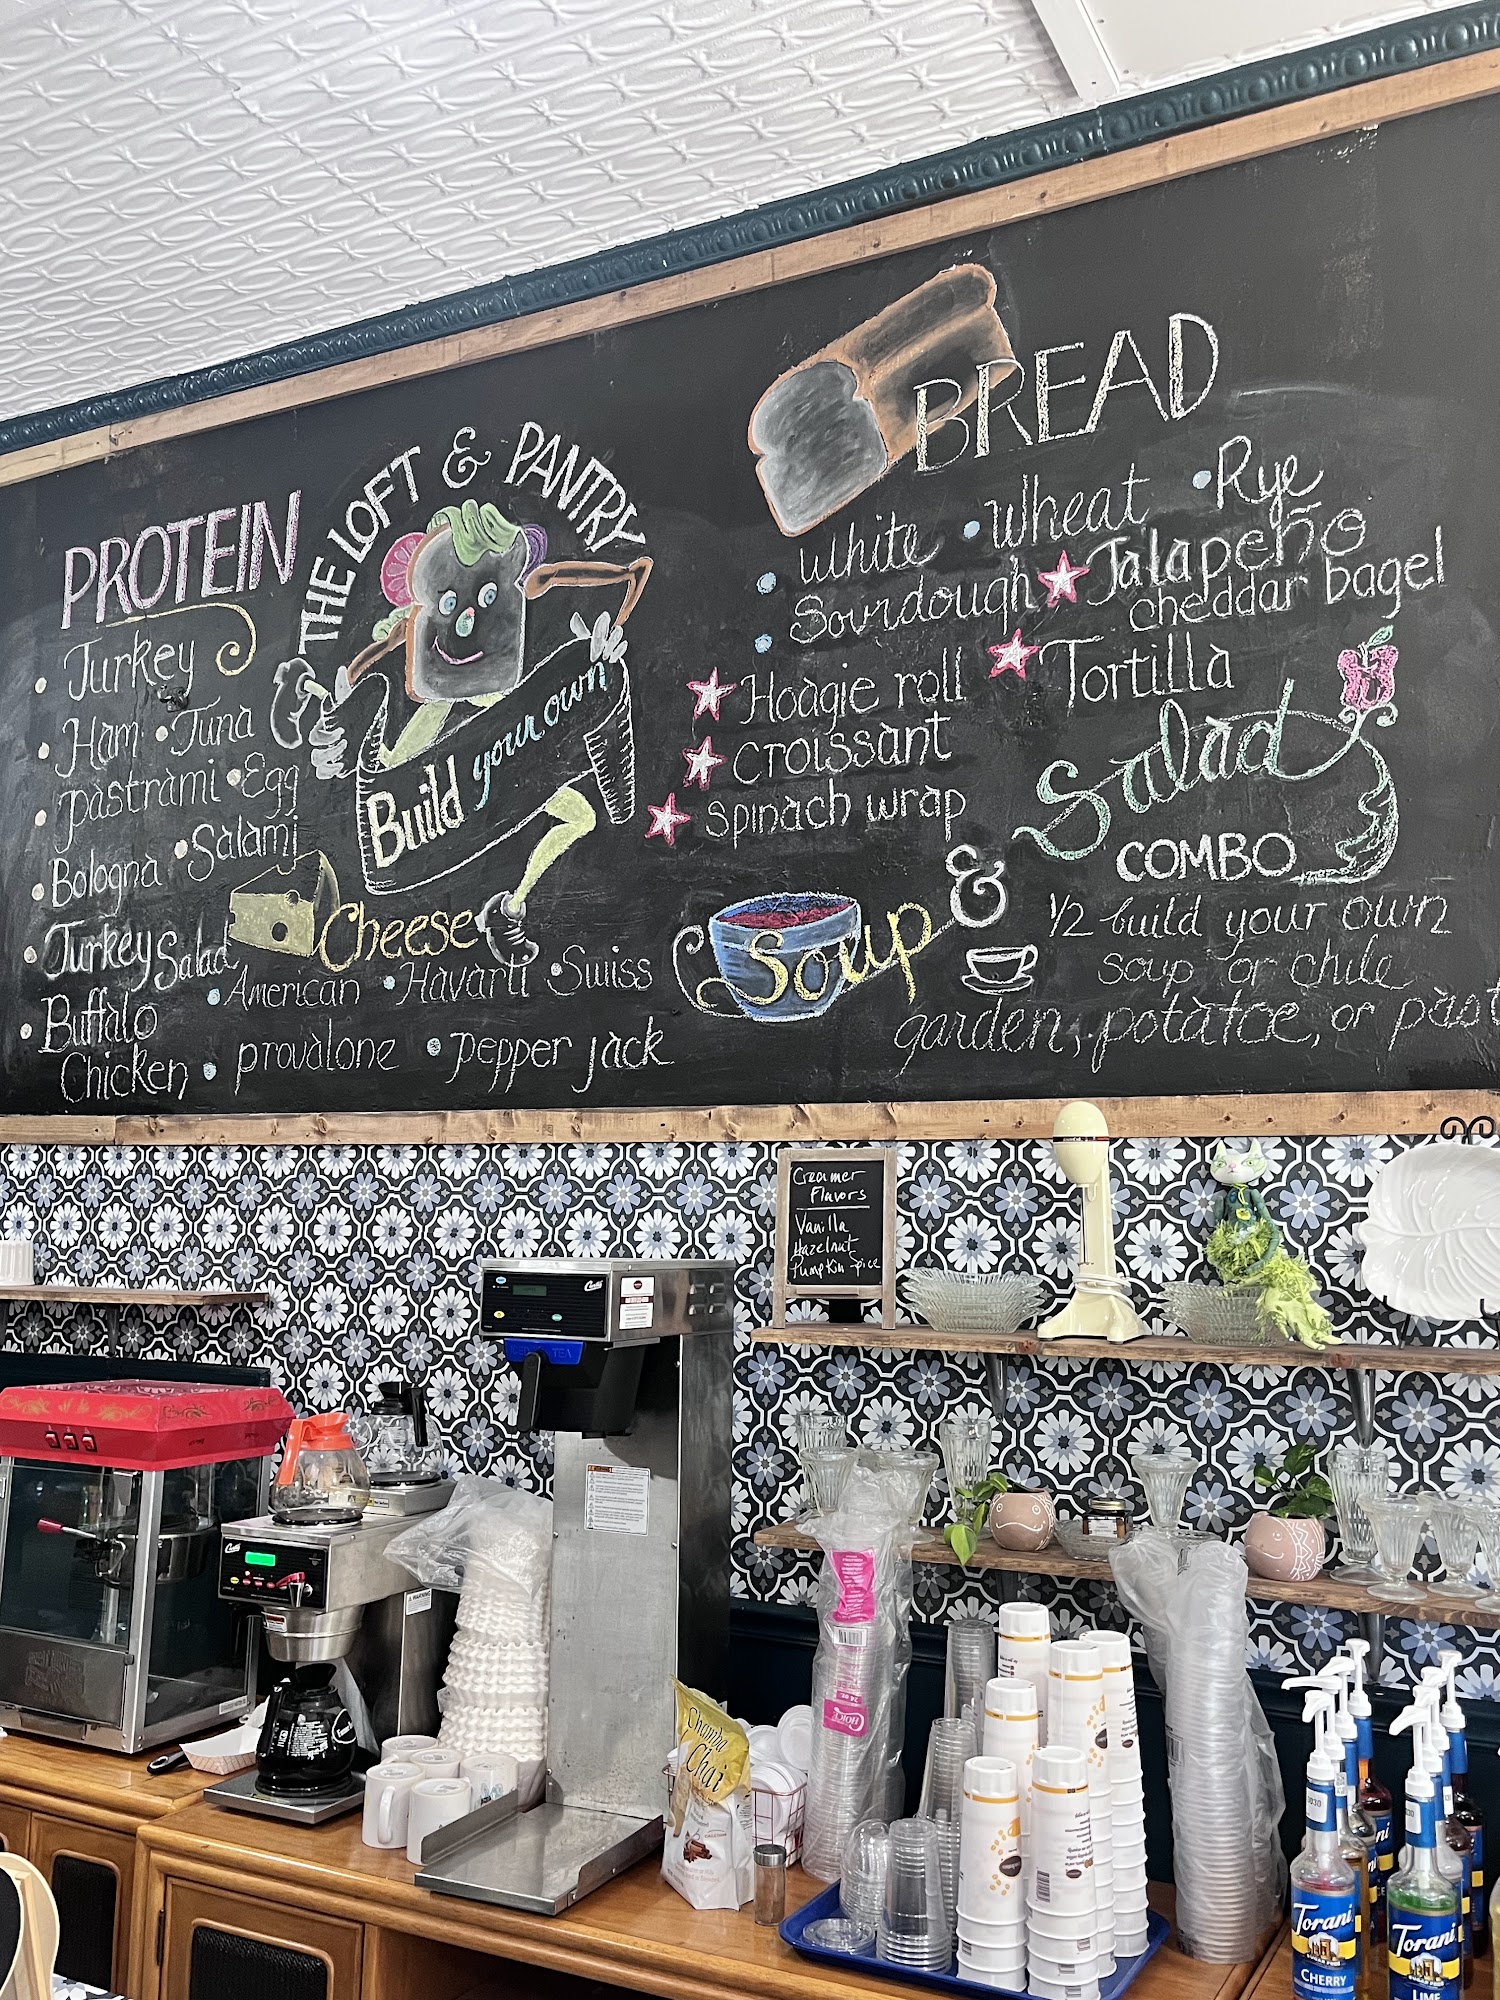 THE LOFT & PANTRY
Build your own
PROTEIN
Turkey
Ham • Tuna
pastrami • Egg
Bologna • Salami
Turkey Salad
Buffalo
Chicken
Cheese
• American • Havarti • Swiss
• provalone • pepper jack
BREAD
• white • wheat • Rye
• Sourdough ★ Jalapeño
cheddar bagel
★ Hoagie roll ★ Tortilla
★ croissant
★ spinach wrap
Soup & Salad
COMBO
1/2 build your own
soup or chile
garden, potatoe, or past
Creamer
Flavors
Vanilla
Hazelnut
Pumpkin spice
Curtis
Curtis
WARNING
WARNING
Chomba
Chai
24 oz.
Torani
CHERRY
Torani
LIME